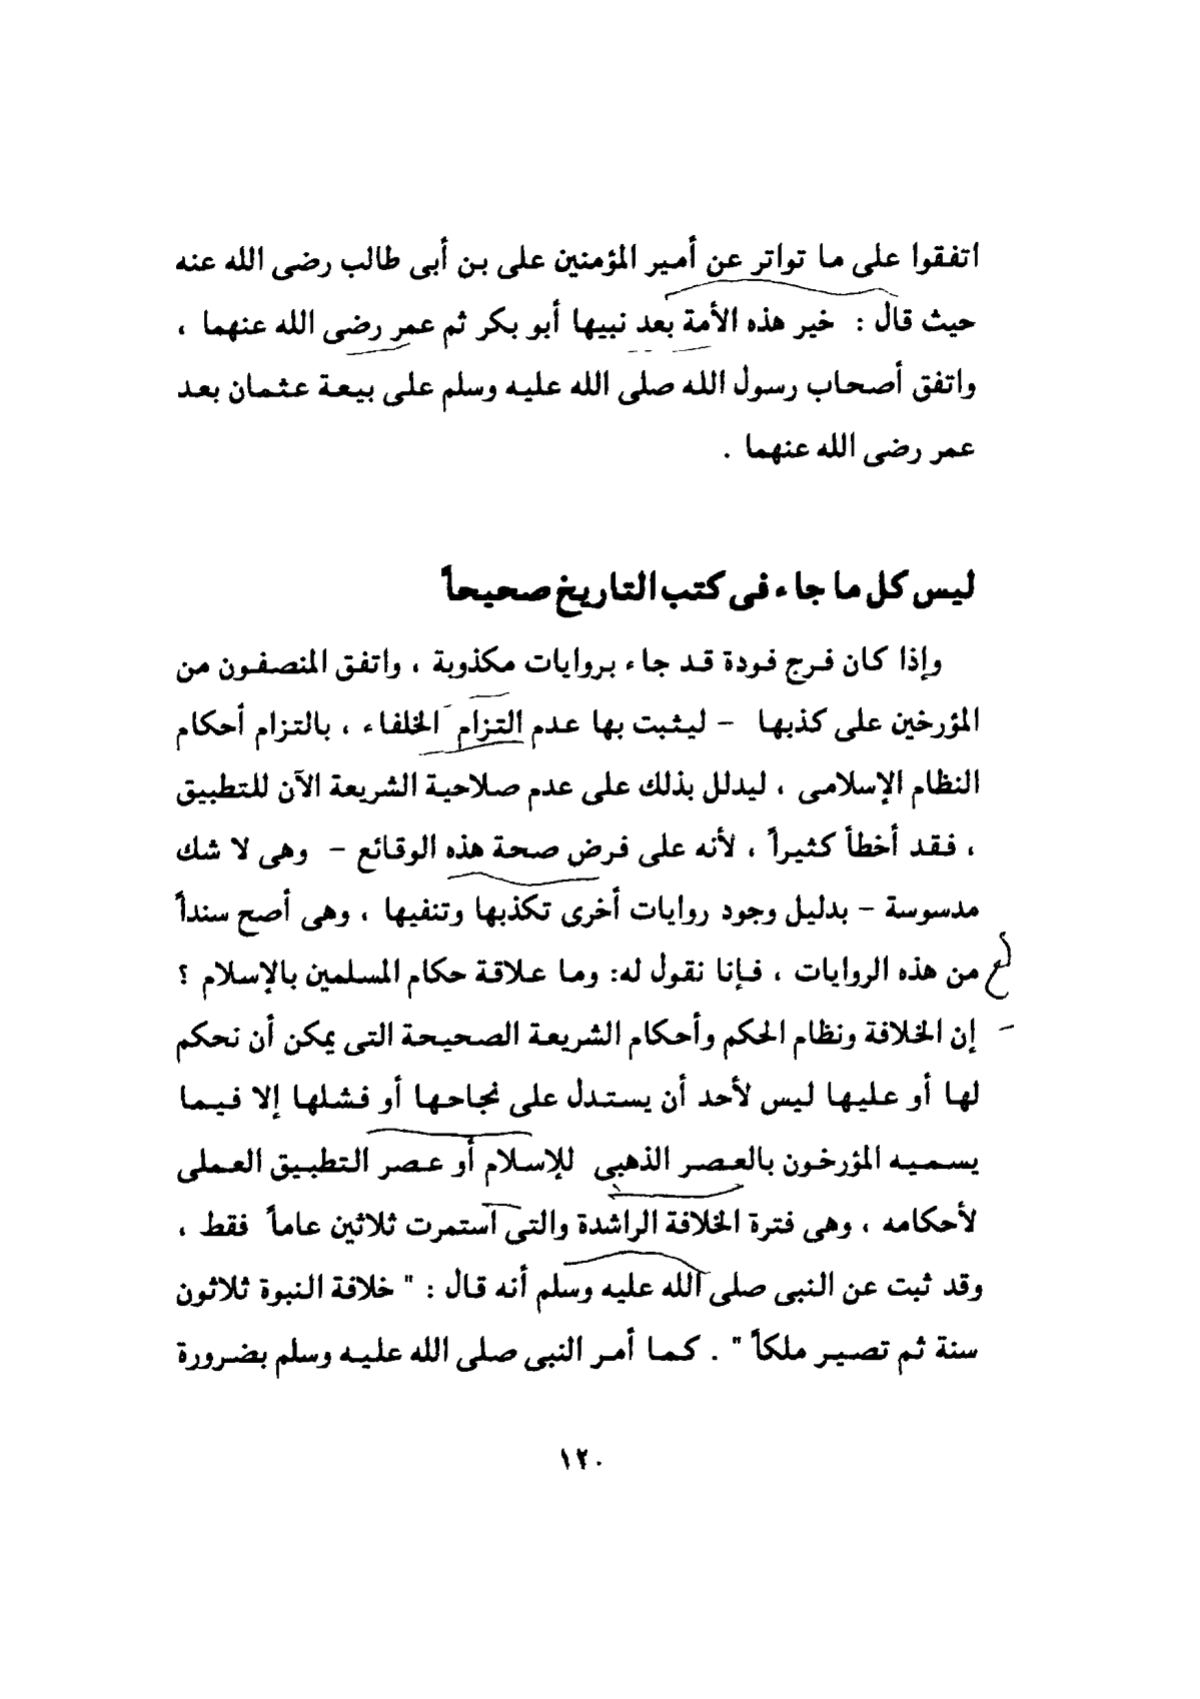 اتفقوا على ما تواتر عن أمير المؤمنين على بن أبى طالب رضى الله عنه
حيث قال : خير هذه الأمة بعد نبيها أبو بكر ثم عمر رضى الله عنهما ،
واتفق أصحاب رسول الله صلى الله عليه وسلم على بيعة عثمان بعد
عمر رضى الله عنهما .
ليس كل ما جاء فى كتب التاريخ صحيحاً
وإذا كان فرج فودة قد جاء بروايات مكذوبة ، واتفق المنصفون من
المؤرخين على كذبها – ليثبت بها عدم التزام الخلفاء ، بالتزام أحكام
النظام الإسلامى ، ليدلل بذلك على عدم صلاحية الشريعة الآن للتطبيق
، فقد أخطأ كثيراً ، لأنه على فرض صحة هذه الوقائع – وهى لا شك
مدسوسة – بدليل وجود روايات أخرى تكذبها وتنفيها ، وهى أصح سنداً
من هذه الروايات ، فإنا نقول له: وما علاقة حكام المسلمين بالإسلام ؟
إن الخلافة ونظام الحكم وأحكام الشريعة الصحيحة التى يمكن أن نحكم
لها أو عليها ليس لأحد أن يستدل على نجاحها أو فشلها إلا فيما
يسميه المؤرخون بالعصر الذهبى للإسلام أو عصر التطبيق العملى
لأحكامه ، وهى فترة الخلافة الراشدة والتى استمرت ثلاثين عاماً فقط ،
وقد ثبت عن النبى صلى الله عليه وسلم أنه قال : " خلافة النبوة ثلاثون
سنة ثم تصير ملكاً " . كما أمر النبى صلى الله عليه وسلم بضرورة
١٢٠